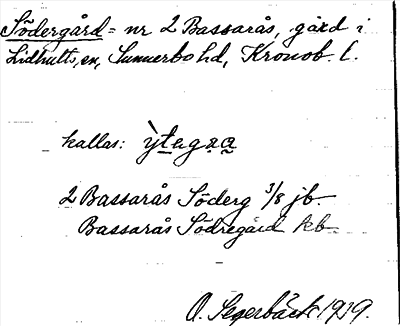 Södergård = nr 2 Bassarås, gård i
Lidhults, en, Sunnerbo hd, Kronob. l.
kallas:
2 Bassarås Söderg 3/8 jb.
Bassarås Södregård kb
O. Segerbäck 1919.